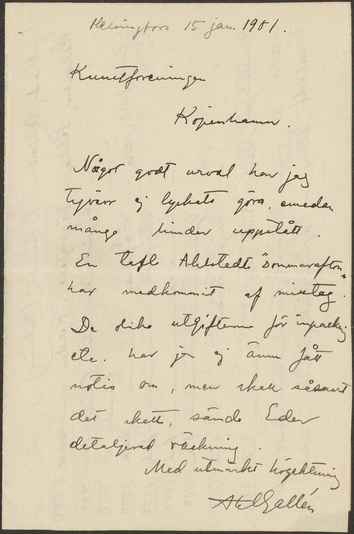 Helsingfors 15 jan. 1901.
Kunstforeningen
Köpenhamn.
Något godt urval har jag
tyvärr ej lyckats göra, emedan
många hinder uppstått.
En tafl Ahlstedts "Sommarafton"
har medkommit af misstag.
De olika utgifterna för inpackning
etc. har jag ej ännu fått
notis om, men skall såsnart
det skett, sända Eder
detaljerad räkning.
Med utmärkt högaktning
Axel Gallén